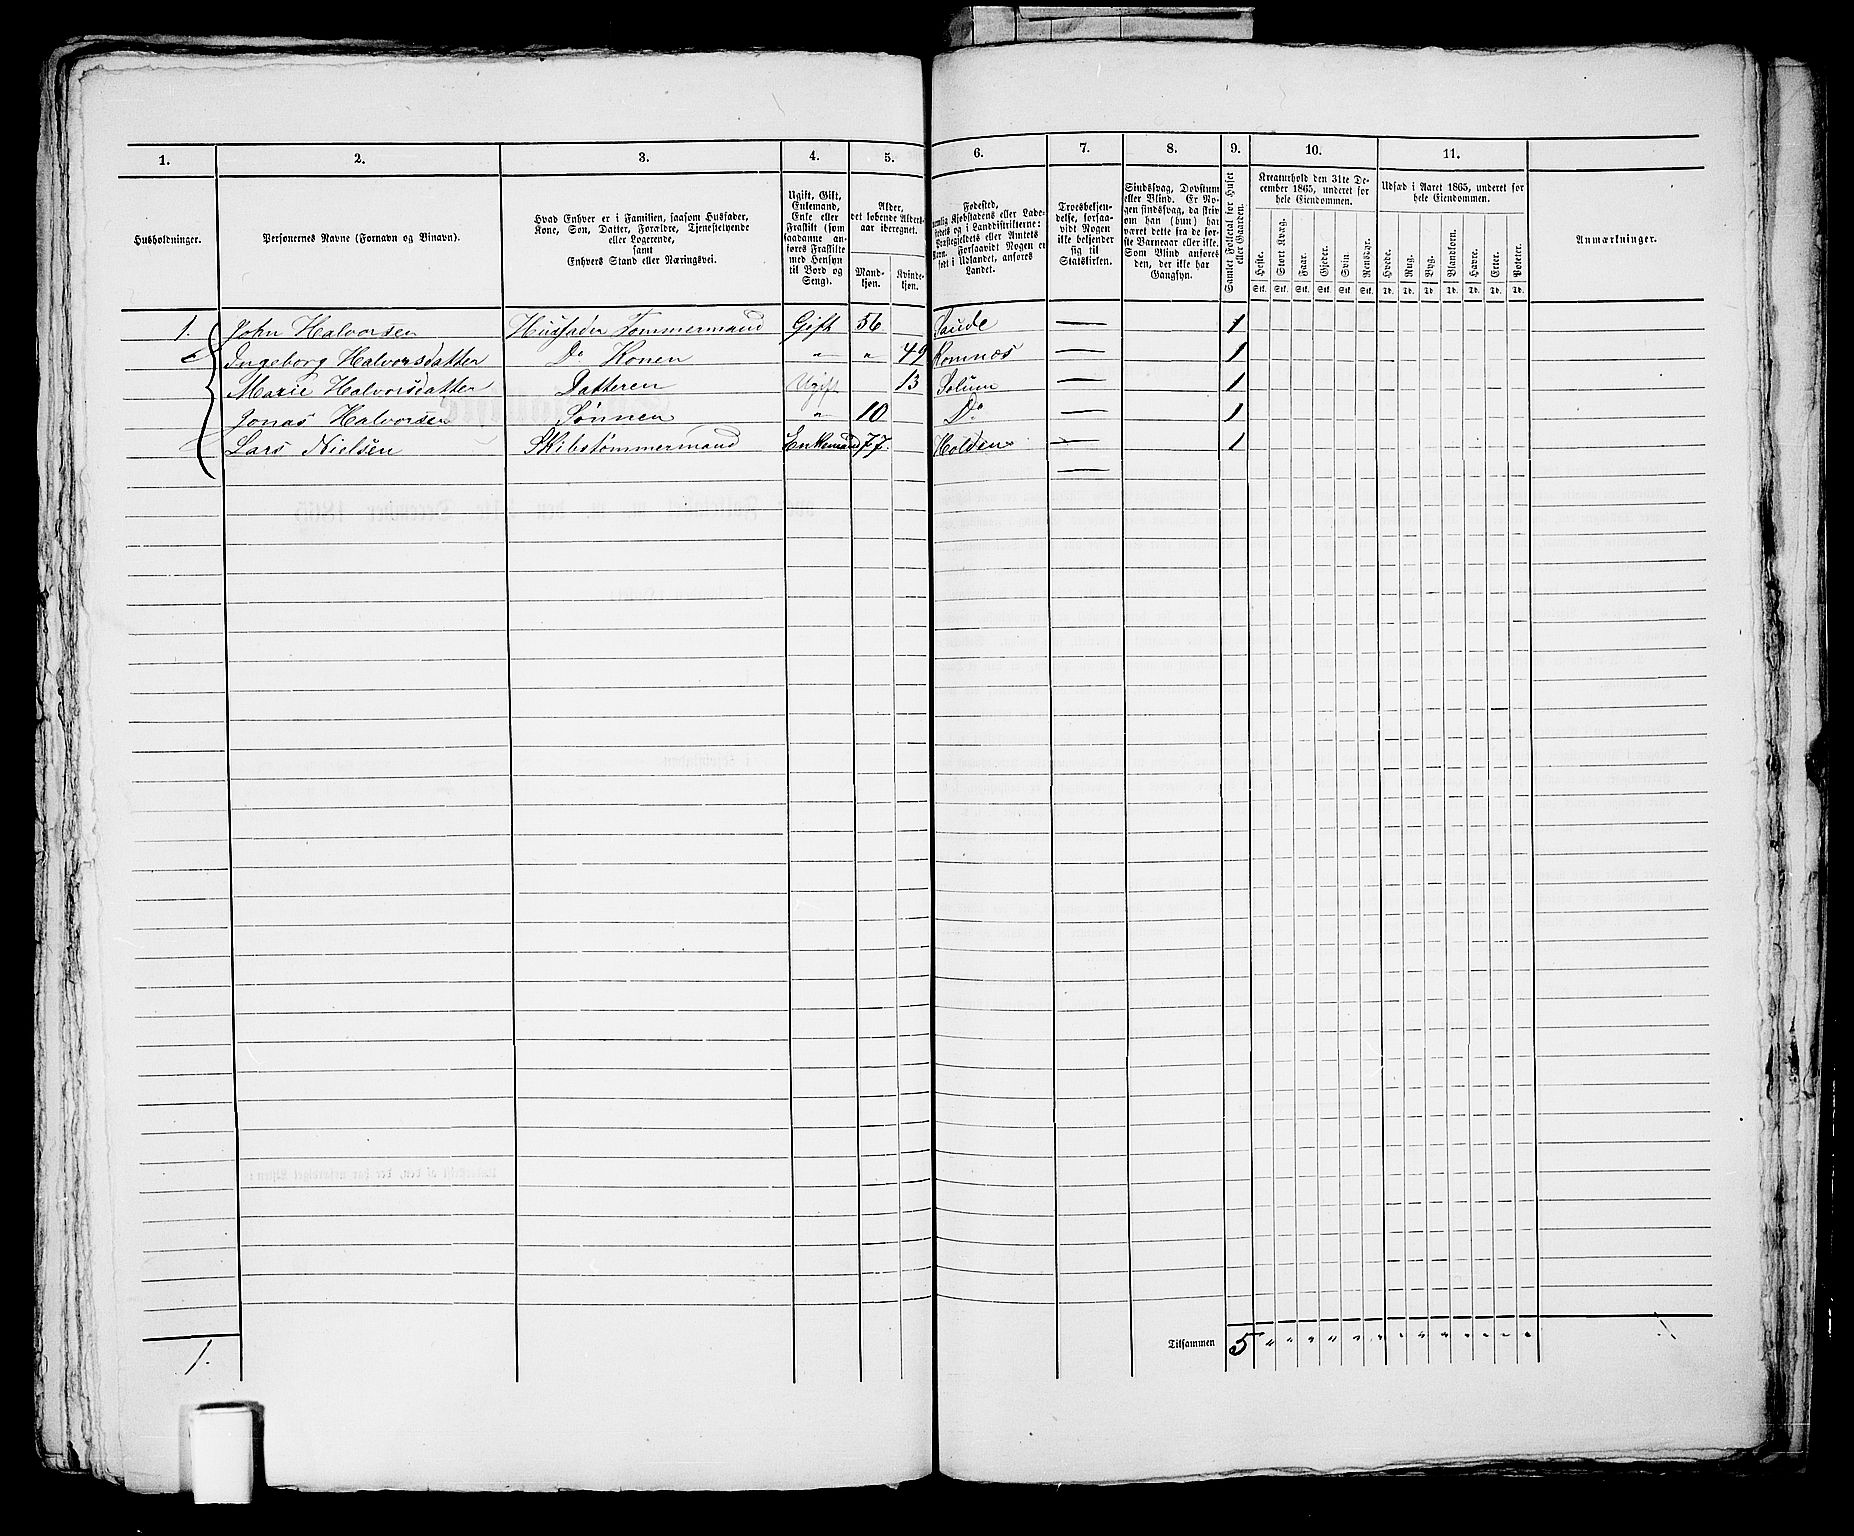 1. 2. 3. 4. 5. 6. 7. 8. 9. 10. 11.
Husholdninger.
Personernes Navne (Fornavn og Binavn).
Hvad Enhver er i Familien, saasom Husfader,
Kone, Søn, Datter, Forældre, Tjenestetyende
eller Logerende,
samt
Enhvers Stand eller Næringsvei.
Ugift, Gift,
Enkemand,
Enke eller
Fraskilt (som
saadanne an-
føres Fraskilte
med Hensyn
til Bord og
Seng).
Alder,
det løbende Alders-
aar iberegnet.
Mand-
kjøn.
Kvinde-
kjøn.
Fødested,
nemlig Kjøbstadens eller Lade-
stedets og i Landdistrikterne:
Præstegjeldets eller Amtets
Navn. Forsaavidt Nogen er
født i Udlandet, anføres
Landet.
Troesbekjen-
delse, forsaa-
vidt Nogen
ikke bekjender
sig til
Statskirken.
Sindssvag, Døvstum
eller Blind. Er No-
gen sindssvag, da skrives
om han (hun) har
været dette fra de før-
ste Barneaar eller ikke.
Som Blind anføres
den, der ikke har
Gangsyn.
Samlet Folketal for Huset
eller Gaarden.
Kreaturhold den 31te De-
cember 1865, underet for
hele Eiendommen.
Heste. Stort Kvæg. Faar. Gjeder. Svin. Rensdyr.
Stk. Stk. Stk. Stk. Stk. Stk.
Udsæd i Aaret 1865, underet for
hele Eiendommen.
Hvede. Rug. Byg. Blandkorn. Havre. Erter. Poteter.
Td. Td. Td. Td. Td. Td. Td.
Anmærkninger.
1. John Halvorsen Husfader Tømmermand Gift 56 Saude — 1
Ingeborg Halvorsdatter Do Konen " " 49 Romnæs — 1
Marie Halvorsdatter Datteren Ugift 13 Solum — 1
Jonas Halvorsen Sønnen " 10 Do — 1
Lars Nielsen Skibstømmermand Enkemand 77. Holden — 1
—
1. Tilsammen 5 " " " " " " " " " " " " "